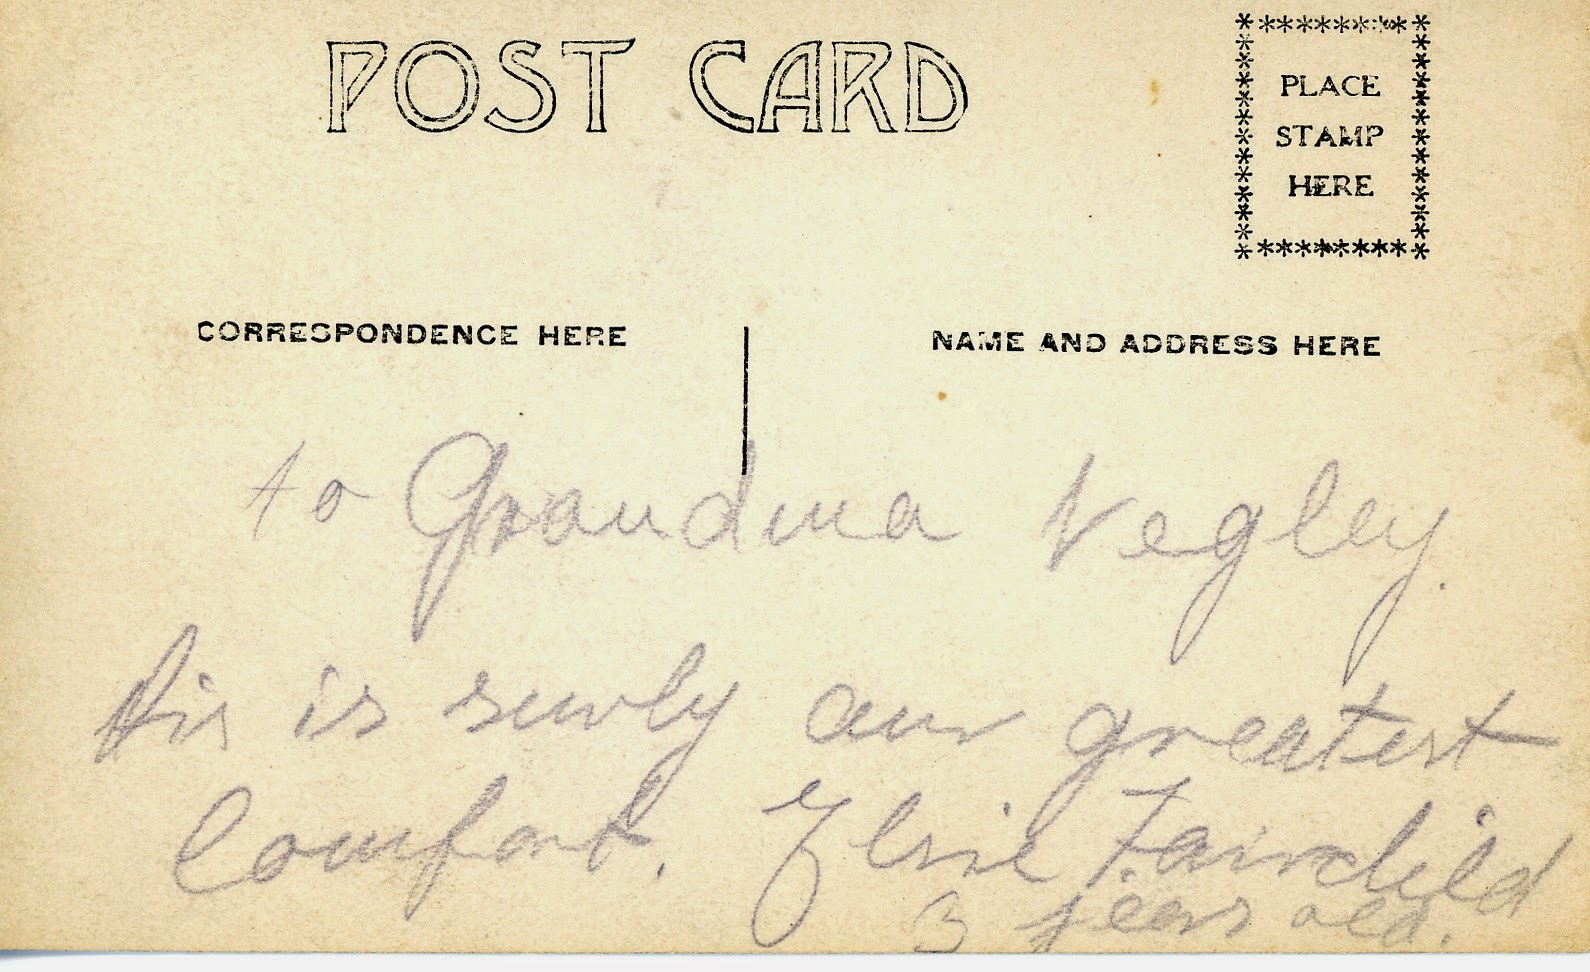 POST CARD
PLACE
STAMP
HERE
CORRESPONDENCE HERE
NAME AND ADDRESS HERE
to Grandma Negley.
is surly our greatest
Comfort. Elsie Fairchild
3 years old.